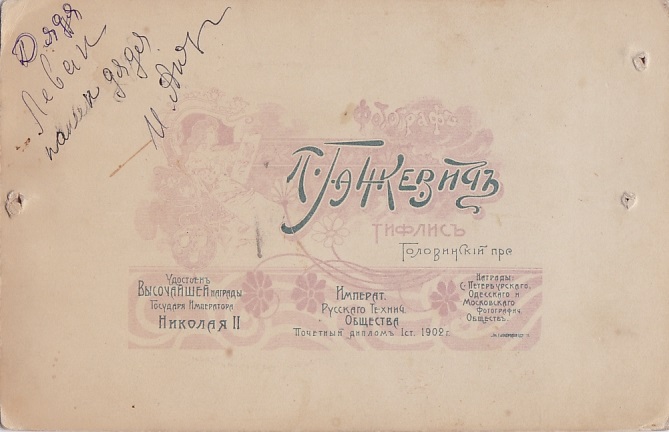 Дядя
Леван
дядя
и
Фотографъ
Тифлисъ
Головинскій пр
Удостоенъ
Высочайшей награды
Государя Императора
Николая II
Императ.
Русскаго Технич.
Общества
Почетный дипломъ 1 ст. 1902 г.
Награды:
С.-Петербургскаго,
Одесскаго и
Московскаго
Фотографич.
Обществъ.